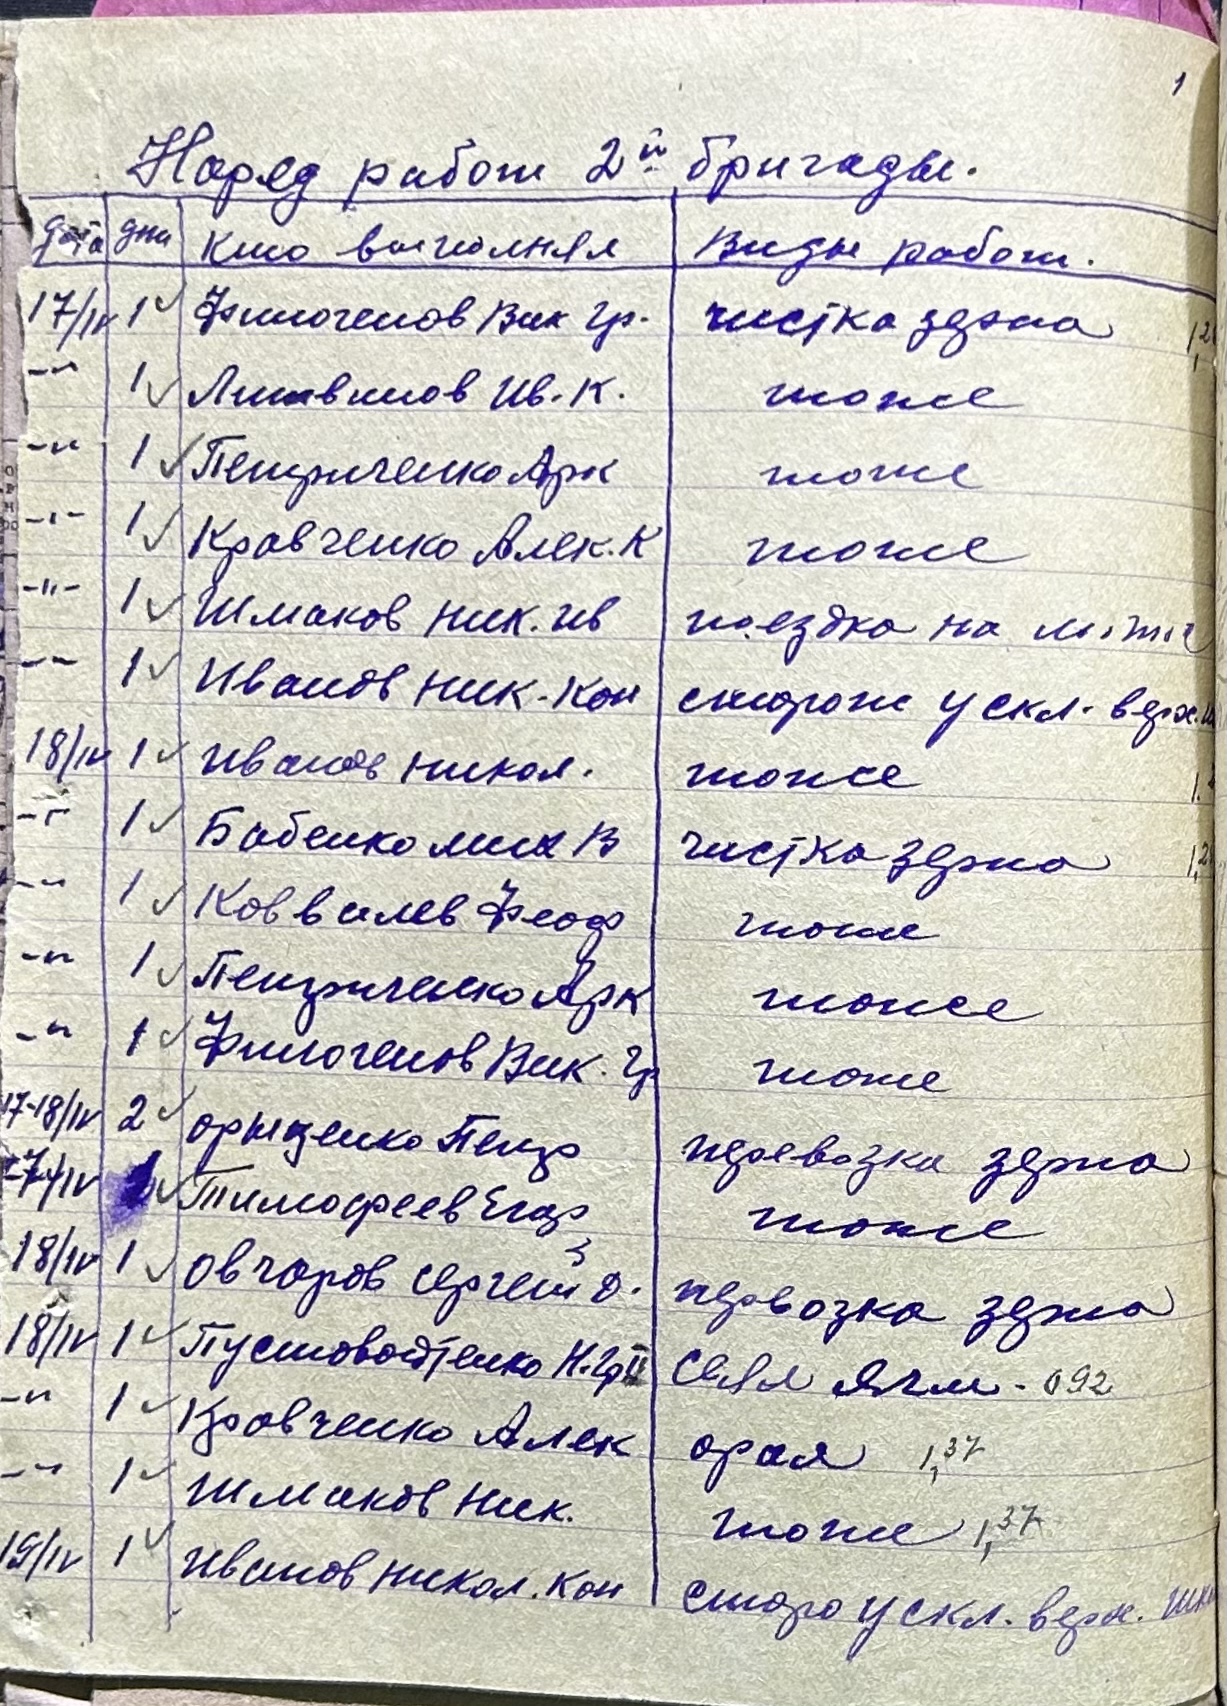 1
Наряд работ 2й бригады.
дата дни Кто выполнял Виды работ.
17/IV 1 Филогенов Вик Гр. чистка зерна 1,2
-"- 1 Литвинов Ив. К. тоже
-"- 1 Петриченко Арк тоже
-"- 1 Кравченко Алек. К тоже
-"- 1 Шмаков Ник. Ив поездка на
-"- 1 Иванов Ник. Кон сторож у скл. верх.
18/IV 1 Иванов Никол. тоже 1.
-"- 1 Бабенко Мих В чистка зерна 1,2
-"- 1 Коввалев Феоф тоже
-"- 1 Петриченко Арк тоже
-"- 1 Филогенов Вик. Гр тоже
17-18/IV 2 Орищенко Петр перевозка зерна
17/IV Тимофеев Егор тоже
18/IV 1 Овчаров Сергей Д. перевозка зерна
18/IV 1 Пустовойтенко Н. Гр II сеял ячм - 092
-"- 1 Кравченко Алек орал 1,37
-"- 1 Шмаков Ник. тоже 1,37
19/IV 1 Иванов Никол. Кон сторо у скл. верх.